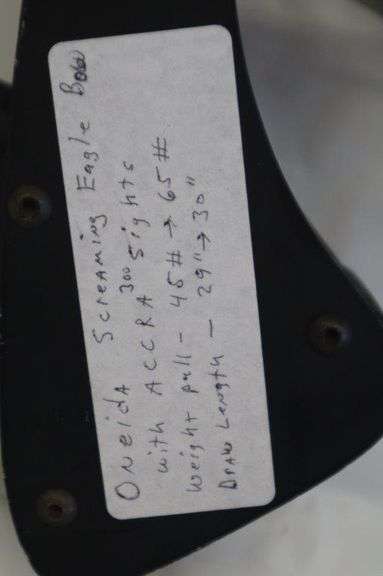 Oneida Screaming Eagle Bow
with ACCRA 300 Sights
Weight pull - 45# → 65#
Draw Length - 29" → 30"